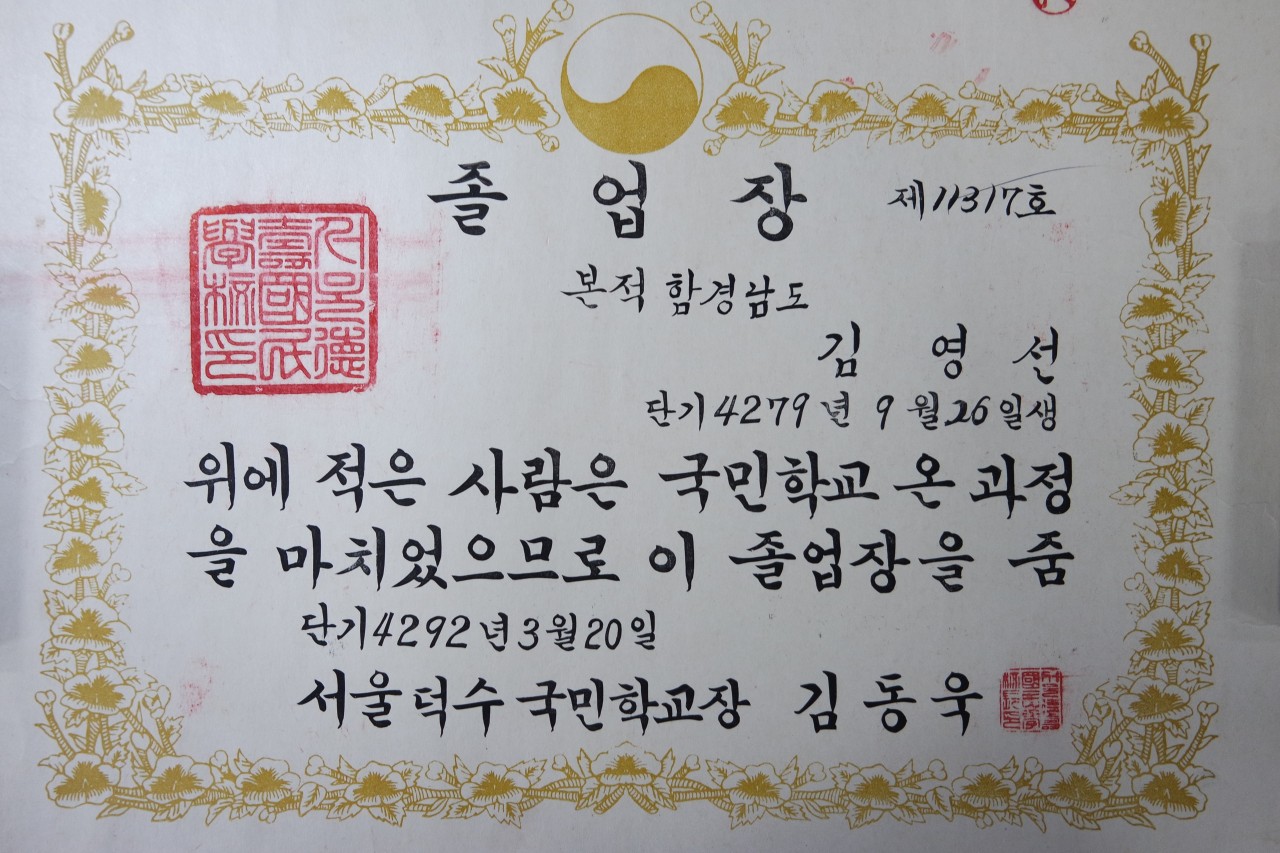 졸업장 제11317호
본적 함경남도
김영선
단기 4279년 9월 26일생
위에 적은 사람은 국민학교 온 과정
을 마치었으므로 이 졸업장을 줌
단기 4292년 3월 20일
서울덕수국민학교장 김동욱
德
壽國民
學校印